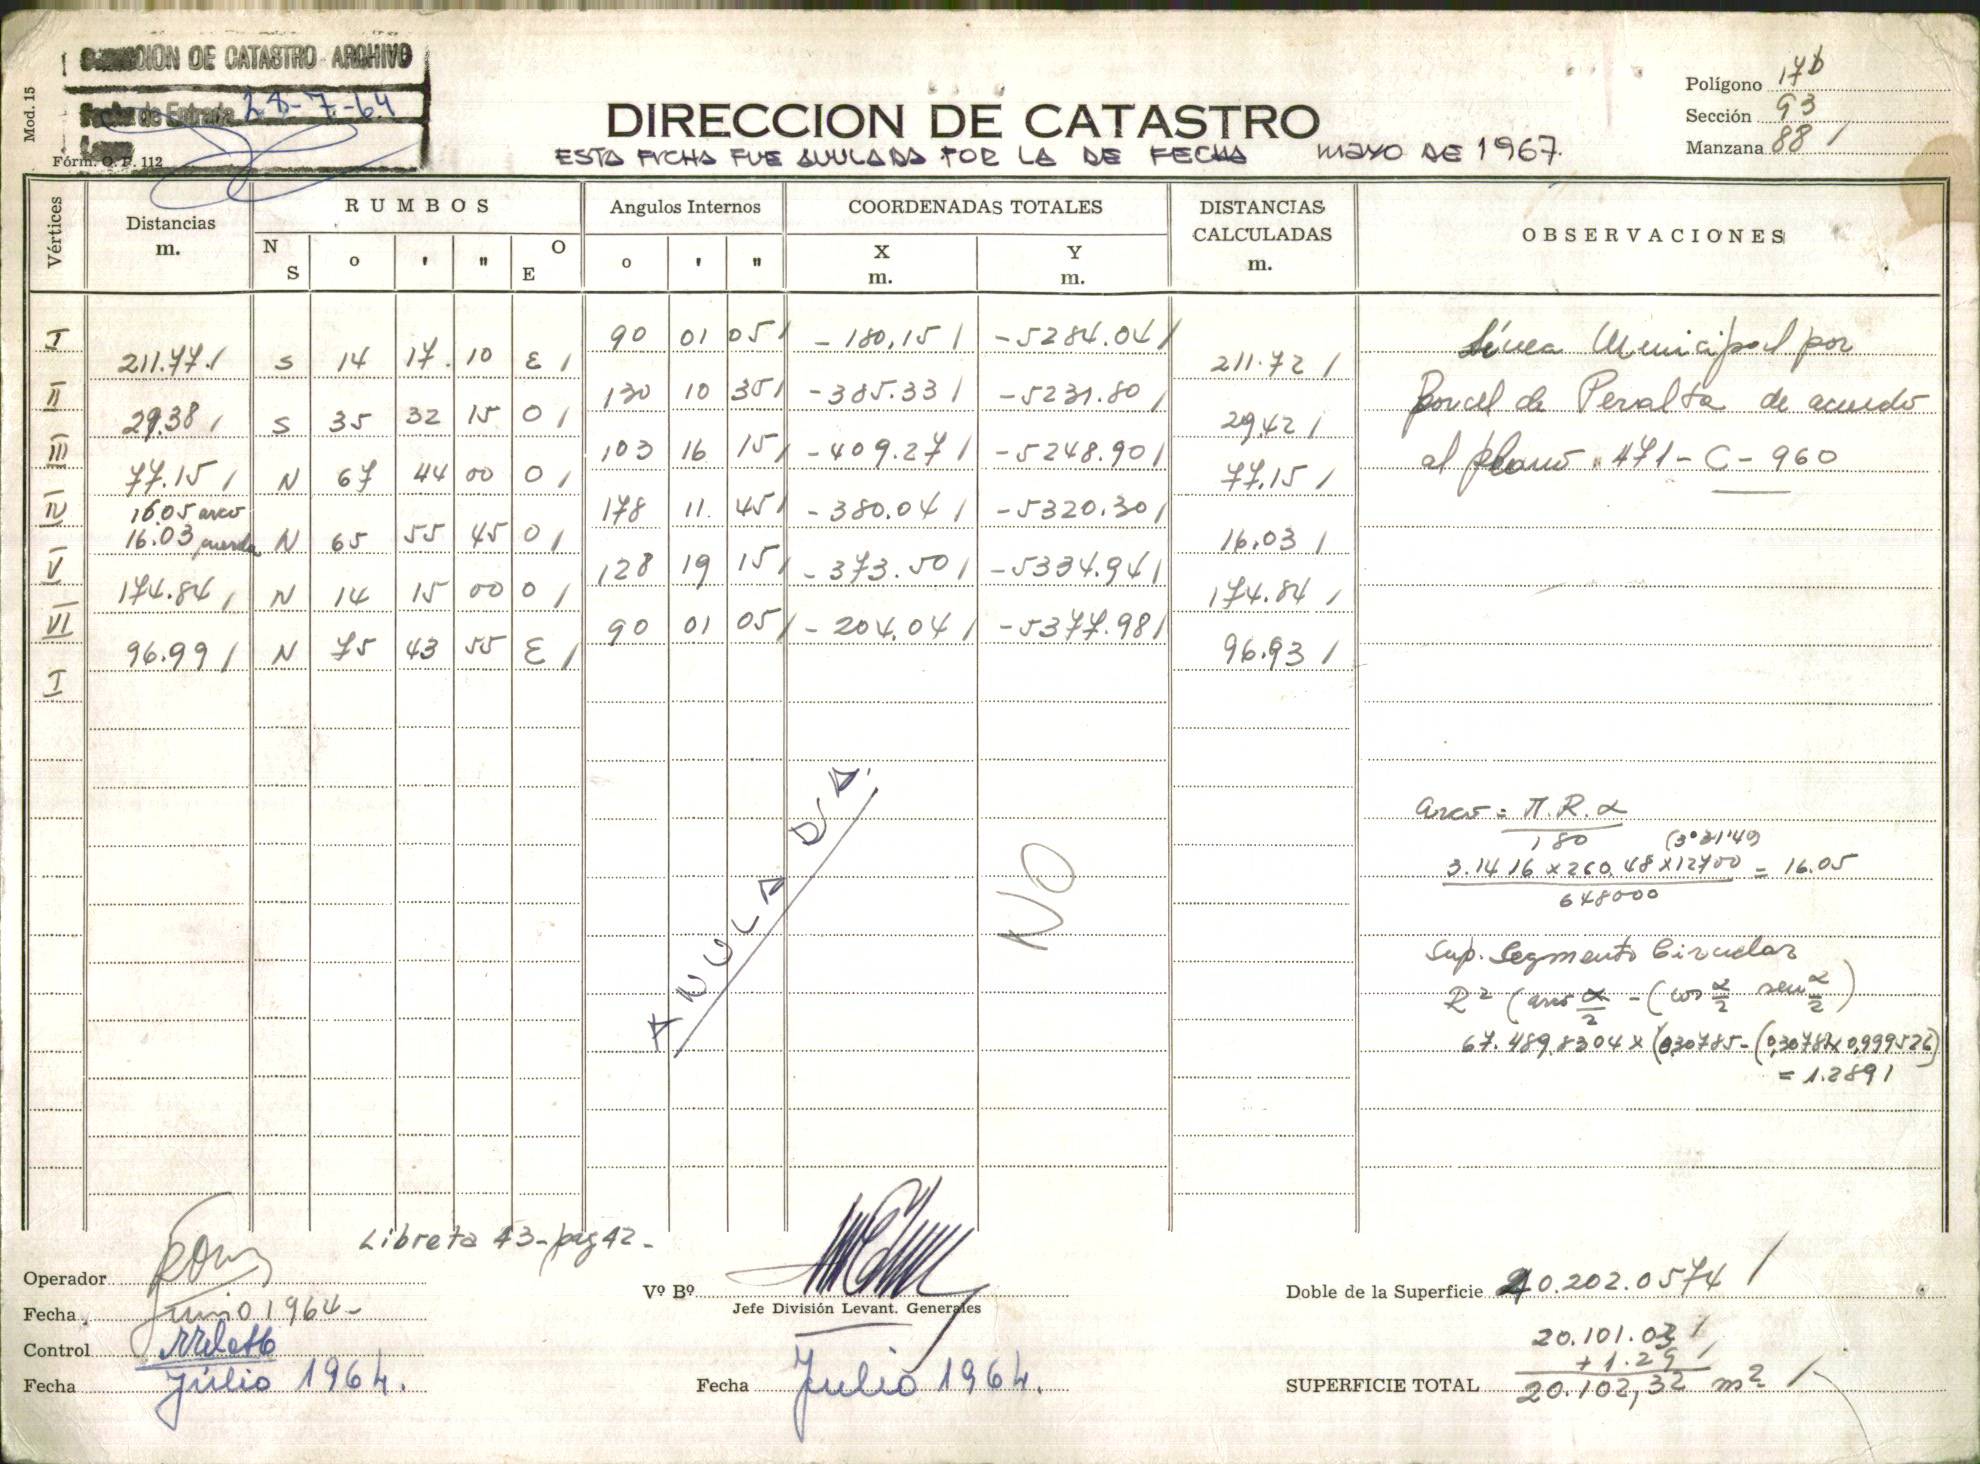 DIRECCION DE CATASTRO - ARCHIVO
Fecha de Entrada 28-7-64
Mod. 15
Fórm. O. P. 112
DIRECCION DE CATASTRO
ESTA FICHA FUE ANULADA POR LA DE FECHA MAYO DE 1967.
Polígono 17b
Sección 93
Manzana 88 /
Vértices
Distancias m.
RUMBOS
N S ° ' " O E
Angulos Internos
° ' "
COORDENADAS TOTALES
X m. Y m.
DISTANCIAS CALCULADAS m.
OBSERVACIONES
I 90 01 05 / -180,15 / -5284.04 /
211.77 / S 14 17 10 E / 211.72 /
II 130 10 35 / -385.33 / -5231.80 /
29.38 / S 35 32 15 O / 29.42 /
III 103 16 15 / -409.27 / -5248.90 /
77.15 / N 67 44 00 O / 77,15 /
IV 178 11 45 / -380.04 / -5320.30 /
16.05 arco
16.03 cuerda N 65 55 45 O / 16.03 /
V 128 19 15 / -373.50 / -5334.94 /
174.84 / N 14 15 00 O / 174.84 /
VI 90 01 05 / -204.04 / -5377.98 /
96.99 / N 75 43 55 E / 96.93 /
I
Línea Municipal por
Porcel de Peralta de acuerdo
al plano 471-C-960
ANULADA.
NO
arco = π.R.α
180 (3°31'40)
3.1416 x 260.48 x 12700 = 16.05
648000
Sup. Segmento Circular
R² (arco α/2 - (cos α/2 sen α/2)
67.489,8304 x (0,30785 - (0,30782 x 0,999526)
= 1.2891
Libreta 43 - pag 42 -
Operador
Fecha Junio 1964 -
Control
Fecha Júlio 1964.
Vº Bº
Jefe División Levant. Generales
Fecha Julio 1964.
Doble de la Superficie 40.202.0574 /
20.101.03 /
+ 1.29 /
SUPERFICIE TOTAL 20.102,32 m² /